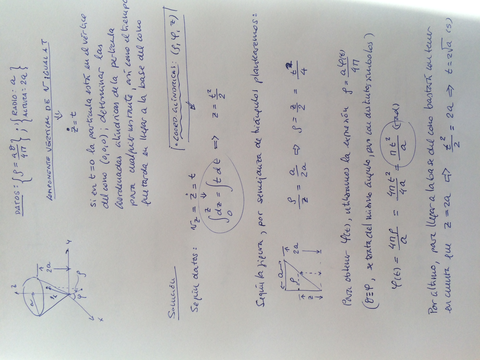 DATOS: { ρ = aθ/4π } ; { RADIO: a ; ALTURA: 2a }
COMPONENTE VERTICAL DE V IGUAL A T
⇓
ż = t
si en t=0 la partícula está en el vértice
del cono (0,0,0); determinar las
coordenadas cilíndricas de la partícula
para cualquier instante, así como el tiempo
que tarda en llegar a la base del cono
Solución
• COORD. CILÍNDRICAS: (ρ, φ, z)
Según datos:
v_z = ż = t
∫₀^z dz = ∫ t dt ⟺ z = t²/2
Según la figura, por semejanza de triángulos plantearemos:
ρ/z = a/2a ⇒ ρ = z/2 = t²/4
Para obtener φ(t), utilizamos la expresión ρ = aφ(t)/4π
(θ≡φ, se trata del mismo ángulo, pero con distintos símbolos)
φ(t) = 4πρ/a = 4πt²/4a = πt²/a (rad)
Por último, para llegar a la base del cono bastará con tener
en cuenta que z = 2a ⇒ t²/2 = 2a ⇒ t = 2√a (s)